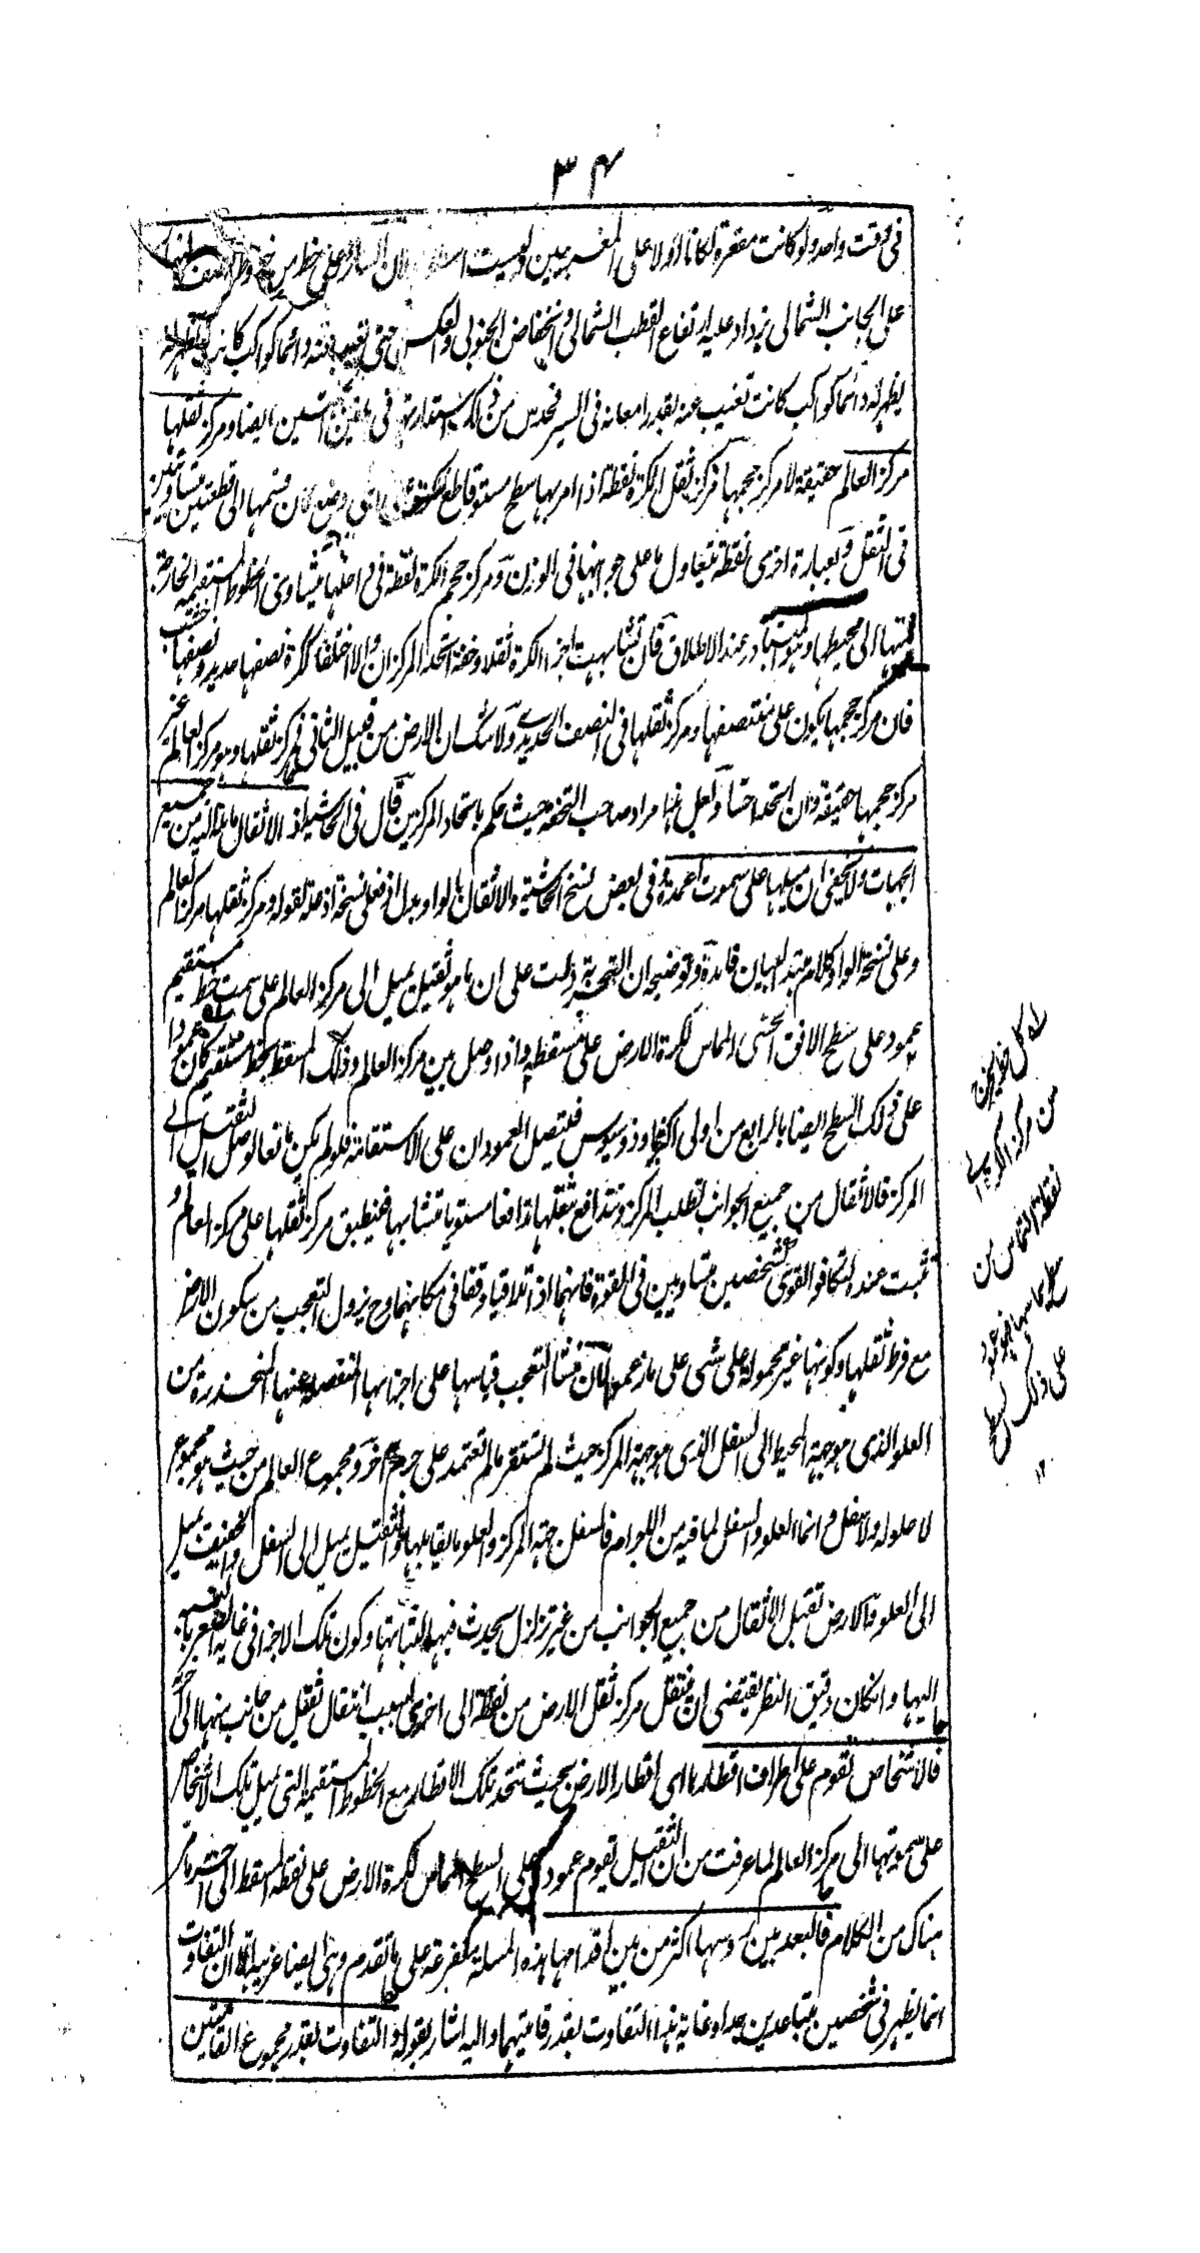 ٣٤
فی وقت واحد ولو کانت مقعرة لکانا اولا علی المغربیین ولیست لان السائر علی خط من
علی الجانب الشمالی یزداد علیه ارتفاع القطب الشمالی وانخفاض الجنوبی وبالعکس حتی تغیب عنه دائما کواکب کانت تظهر له
یظهر له دائما کواکب کانت تغیب عنه بقدر امعانه فی السیر فحدس من ذلک استدارتها فی هاتین الجهتین ایضا ومرکز ثقلها
مرکز العالم حقیقة لا مرکز حجمها فمرکز ثقل الکرة نقطة اذا مر بها سطح مستو قاطع للکرة علی ای وضع کان قسمها الی قطعتین متساویتین
فی الثقل وبعبارة اخری نقطة یتعادل ما علی جوانبها فی الوزن ومرکز حجم الکرة نقطة فی داخلها یتساوی الخطوط المستقیمة الخارجة
منها الی محیطها وهو المتبادر عند الاطلاق فان تشابهت اجزاء الکرة ثقلا وخفة اتحد المرکزان والا اختلفا ککرة نصفها حدید ونصفها خشب
فان مرکز حجمها یکون علی منتصفها ومرکز ثقلها فی النصف الحدیدی ولا شک ان الارض من قبیل الثانی فمرکز ثقلها وهو مرکز العالم غیر
مرکز حجمها حقیقة وان اتحدا حسا ولعل هذا مراد صاحب التحفة حیث حکم باتحاد المرکزین قال فی الحاشیة اذ الاثقال مائلة الیه من جمیع
الجهات ولا یخفی ان میلها علی سموت اعمدة وفی بعض نسخ الحاشیة والاثقال بالواو بدل اذ فعلی نسخة اذ علة لقوله ومرکز ثقلها مرکز العالم
وعلی نسخة الواو کلام مبتدأ لبیان فائدة وتوضیحه ان التجربة دلت علی ان ما هو ثقیل یمیل الی مرکز العالم علی سمت خط مستقیم
عمود علی سطح الافق الحسی المماس لکرة الارض علی مسقطه واذا وصل بین مرکز العالم وذلک المسقط بخط مستقیم کان عمودا
علی ذلک السطح ایضا بالرابع من اولی اکر ثاوذوسیوس فیتصل العمودان علی الاستقامة فلو لم یکن مانعا لوصل الثقیل الی
المرکز فالاثقال من جمیع الجوانب تطلب المرکز وتتدافع بثقلها تدافعا مستویا متشابها فینطبق مرکز ثقلها علی مرکز العالم و
تثبت عنده لتکافؤ القوی کشخصین متساویین فی القوة فانهما اذا تلاقیا وقفا فی مکانهما وح یزول التعجب من سکون الارض
مع فرط ثقلها وکونها غیر محمولة علی شی علی ما زعموا لان منشأ التعجب قیاسها علی اجزائها المنفصلة عنها المنحدرة من
العلو الذی هو جهة المحیط الی السفل الذی هو جهة المرکز حیث لم تستقر ما لم تعتمد علی جرم آخر ومجموع العالم من حیث هو مجموع
لا علو له ولا سفل وانما العلو والسفل لما فیه من الاجرام فالسفل جهة المرکز والعلو ما یقابلها والثقیل یمیل الی السفل والخفیف یمیل
الی العلو فالارض تقبل الاثقال من جمیع الجوانب من غیر تزلزل یحدث فیها لثباتها وکون تلک الاجزاء فی غایة الصغر بالنسبة
الیها وان کان دقیق النظر یقتضی ان ینتقل مرکز ثقل الارض من نقطة الی اخری بسبب انتقال ثقیل من جانب منها الی آخر
فالاشخاص تقوم علی اطراف اقطارها ای اقطار الارض بحیث تتحد تلک الاقطار مع الخطوط المستقیمة التی یمیل تلک الاشخاص
علی سموتها الی مرکز العالم لما عرفت من ان الثقیل یقوم عمودا علی السطح المماس لکرة الارض علی نقطة المسقط الی آخر ما مر
هناک من الکلام فالبعد بین رؤسها اکثر من بین اقدامها هذه المسئلة متفرعة علی ما تقدم وهی ایضا غریبة الا ان التفاوت
انما یظهر فی شخصین متباعدین جدا وغایة هذا التفاوت بقدر قامتیهما والیه اشار بقوله والتفاوت بقدر مجموع القامتین
له کل خط یخرج
من مرکز الکرة الی
نقطة التماس من
سطح یماسها فهو عمود
علی ذلک السطح
١٢